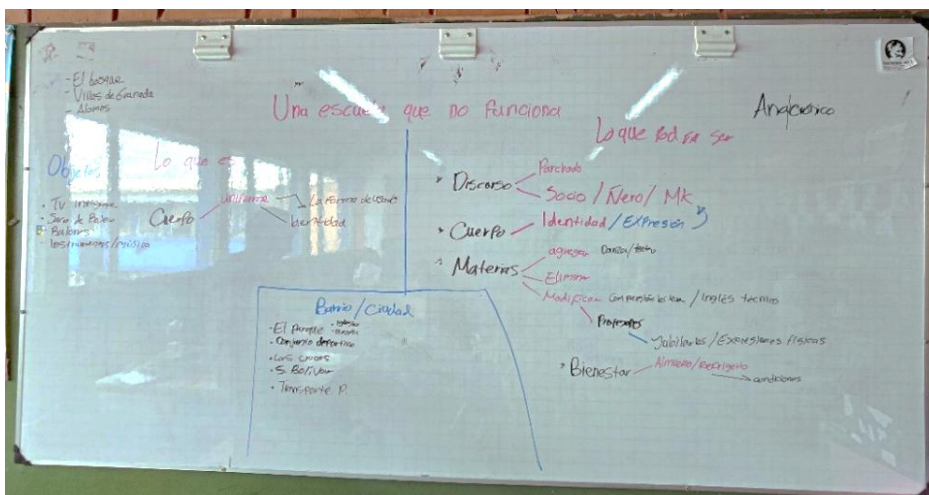 - El bosque
- Villas de Granada
- Alamos
Una escuela que no funciona
Anglocinico
Lo que es
Lo que podría ser
Objetos
• TV
• Balones
- Instrumentos/música
Cuerpo
uniforme
La forma de usarlo
Identidad
Discurso
Parchado
Socio / Ñero / MK
Cuerpo
Identidad / Expresión
Materias
agregar Danza/teatro
Eliminar
Modificar Comprensión lectora / Inglés técnico
Profesores
Jubilarlos / Expresiones físicas
Bienestar
Almuerzo/Refrigerio
condiciones
Barrio / Ciudad
• El Parque
• Conjunto deportivo
• Los cursos
• S. Bolivar
• Transporte P.